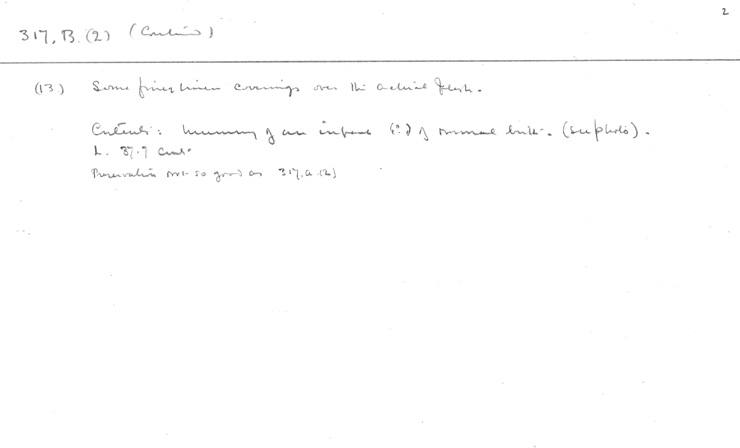 2
317, B. (2) (Continued)
(13) Some finer linen coverings over the actual flesh.
Contents: Mummy of an infant (?) of normal birth. (see photo).
L. 37.7 cent.
Preservation not so good as 317, a. (2)